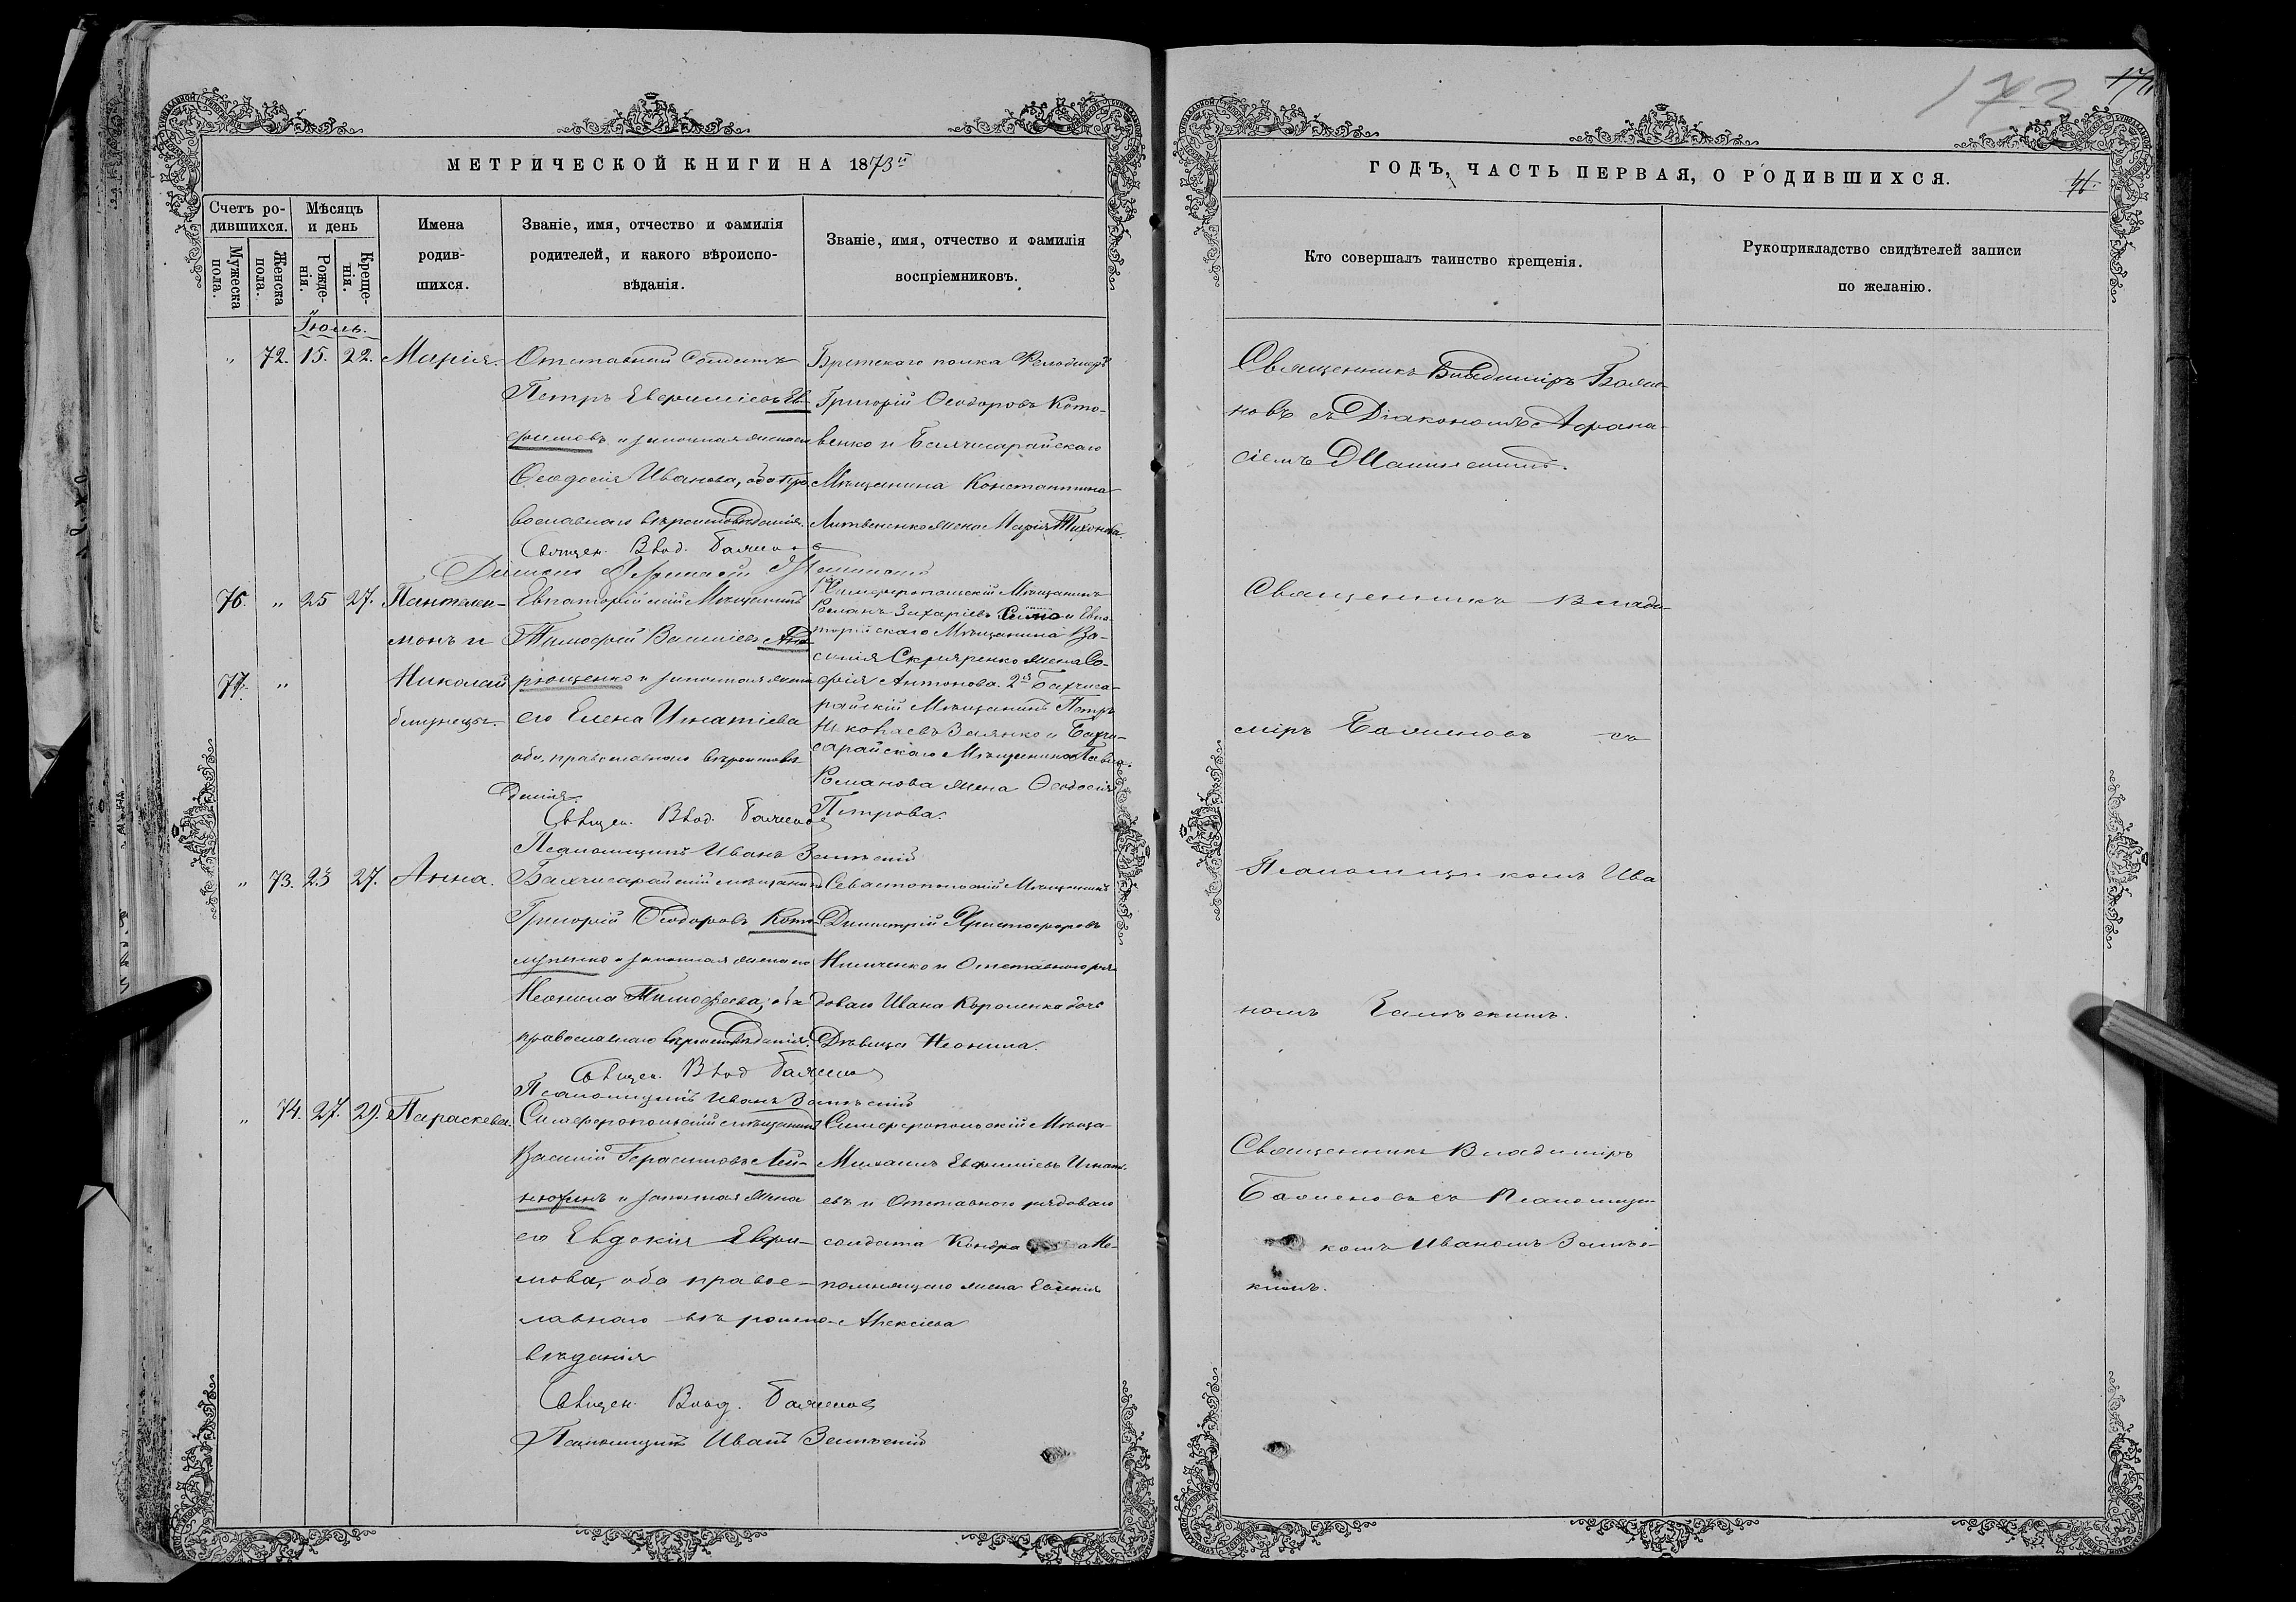 173
МЕТРИЧЕСКОЙ КНИГИ НА 1873й
ГОДЪ, ЧАСТЬ ПЕРВАЯ, О РОДИВШИХСЯ.
Счетъ ро-
дившихся.
Мужеска
пола.
Женска
пола.
Мѣсяцъ
и день
Рожде-
нія.
Креще-
нія.
Имена
родив-
шихся.
Званіе, имя, отчество и фамилія
родителей, и какого вѣроиспо-
вѣданія.
Званіе, имя, отчество и фамилія
воспріемниковъ.
Кто совершалъ таинство крещенія.
Рукоприкладство свидѣтелей записи
по желанію.
Іюль.
" 72. 15. 22. Марія.
Отставный Солдатъ
Петръ Евфиміевъ Ев-
фимовъ и законная жена его
Ѳеодосія Иванова, оба пра-
вославнаго вѣроисповѣданія.
Священ. Влад. Баженовъ
Діаконъ Афанасій
Брестскаго полка Фельдшеръ
Григорій Ѳеодоровъ Кото-
венко и Бахчисарайскаго
Мѣщанина Константина
Литвененко жена Марія Тихонова.
Священникъ Владиміръ Баже-
новъ съ Діакономъ Афана-
сіемъ
76. " 25 27. Пантелеи-
монъ и
77. " Николай
близнецы.
Евпаторійскій Мѣщанинъ
Тимофей Василіевъ Ан-
рющенко и законная жена
его Елена Игнатіева
оба, православнаго вѣроисповѣ-
данія.
Священ. Влад. Баженовъ
Псаломщикъ Иванъ
1й Симферопольскій Мѣщанинъ
Романъ Захаріевъ и Евпа-
торійскаго Мѣщанина Ва-
силія Скляренко жена Со-
фія Антонова. 2й Бахчиса-
райскій Мѣщанинъ Петръ
Николаевъ и Бахчи-
сарайскаго Мѣщанина Павла
Романова жена Ѳеодосія
Петрова.
Священникъ Влади-
міръ Баженовъ съ
Псаломщикомъ Ива
номъ
" 73. 23 27. Анна.
Бахчисарайскій мѣщанинъ
Григорій Ѳеодоровъ Кот-
и законная жена его
Неонила Тимофеева, оба
православнаго вѣроисповѣданія.
Священ. Влад Баженовъ
Псаломщикъ Иванъ
Севастопольскій Мѣщанинъ
Димитрій Христофоровъ
и Отставного ря-
доваго Ивана Короленко дочь
Дѣвица Неонила.
" 74. 27. 29. Параскева.
Симферопольскій мѣщанинъ
Василій Герасимовъ
и законная жена
его Евдокія Евфи-
мова, оба право-
славнаго вѣроиспо-
вѣданія
Священ. Влад. Баженовъ
Псаломщикъ Иванъ
Симферопольскій Мѣща-
Михаилъ Евфиміевъ Игнать-
евъ и Отставного рядоваго
солдата Кондра Не-
помнящаго жена Евгенія
Алексіева
Священникъ Владиміръ
Баженовъ съ Псаломщи-
комъ Иваномъ